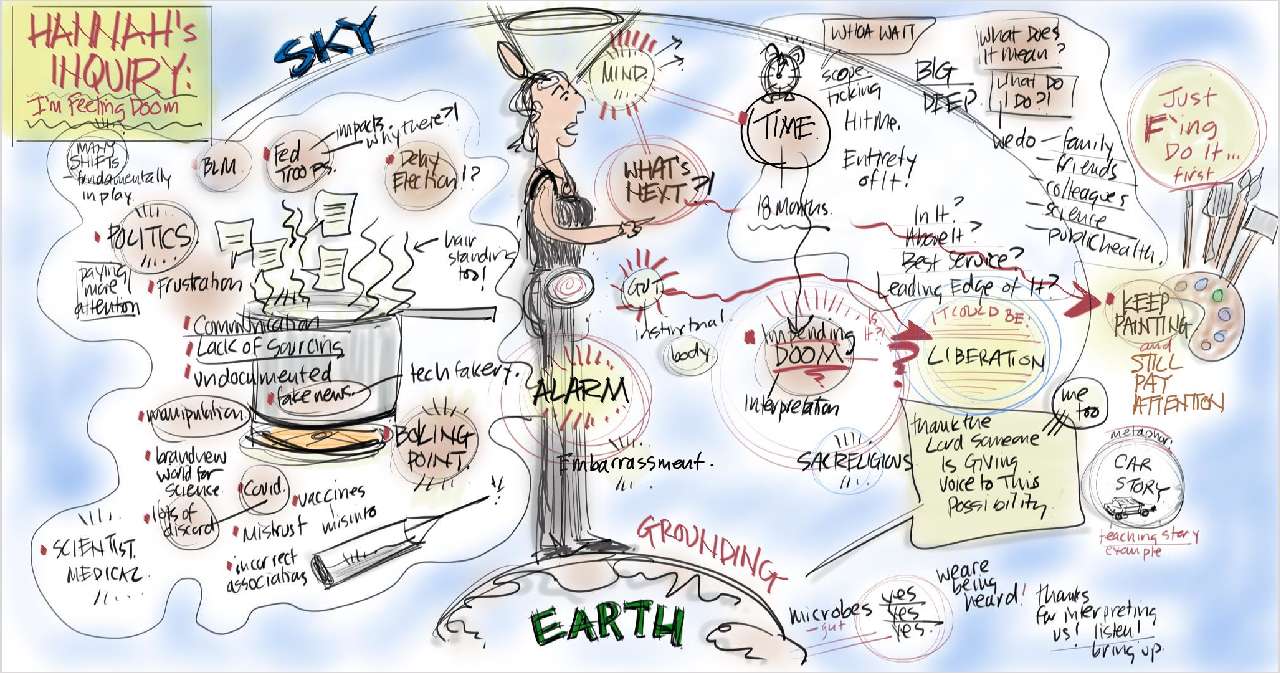 HANNAH's
INQUIRY:
I'm Feeling Doom
SKY
MANY
SHIFTS
fundamentally
in play
BLM.
Fed
Troops.
impacts.
why there?!
Delay
Election!?
POLITICS
paying
more
attention
Frustration
hair
standing
too!
Communication
Lack of Sourcing
undocumented
fake news.
tech fakery.
manipulation
brand new
world for
science
lots of
discord
Covid.
vaccines
Mistrust misinfo
incorrect
associations
SCIENTIST.
MEDICAL.
BOILING
POINT.
MIND.
WHAT'S
NEXT?!
GUT.
instinctual.
body
ALARM
Embarrassment.
GROUNDING
EARTH
TIME.
18 Months.
WHOA WAIT
scope
ticking
Hit Me.
Entirety
of It!
BIG
DEEP
What Does
It Mean?
What Do
I Do?!
we do
family
friends
colleagues
science
public health.
In It?
Above It?
Best Service?
Leading Edge of It?
Impending
DOOM
Is
It?!
Interpretation
SACRELIGIOUS
IT COULD BE:
LIBERATION
me
too
thank the
Lord Someone
Is Giving
Voice to This
Possibility.
Just
F'ing
Do It...
first
KEEP
PAINTING
and
STILL
PAY
ATTENTION
metaphor.
CAR
STORY
teaching story
example
microbes
gut
yes
yes
yes.
we are
being
heard!
thanks
for interpreting
us! listen!
bring up.